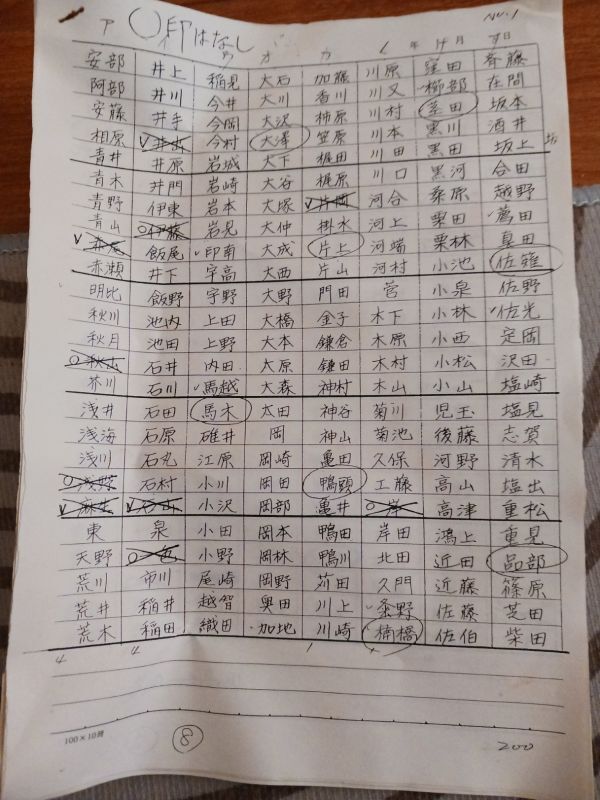 ア 〇印はなし ウ オ カ く 年 月 日 No.1
安部 井上 稲見 大石 加藤 川原 窪田 斉藤
阿部 井川 今井 大川 香川 川又 櫛部 在間
安藤 井手 今岡 大沢 柿原 川村 茎田 坂本
相原 今村 大澤 笠原 川本 黒川 酒井
青井 井原 岩城 大下 梶田 川田 黒田 坂上
青木 井門 岩崎 大谷 梶原 川口 黒河 合田
青野 伊東 岩本 大塚 片岡 河合 桑原 越野
青山 伊藤 岩見 大仲 掛水 河上 栗田 薦田
赤尾 飯尾 印南 大成 片上 河端 栗林 真田
赤瀬 井下 宇高 大西 片山 河村 小池 佐薙
明比 飯野 宇野 大野 門田 菅 小泉 佐野
秋川 池内 上田 大橋 金子 木下 小林 佐光
秋月 池田 上野 大本 鎌倉 木原 小西 定岡
秋山 石井 内田 大原 鎌田 木村 小松 沢田
芥川 石川 馬越 大森 神村 木山 小山 塩崎
浅井 石田 馬木 太田 神谷 菊川 児玉 塩見
浅海 石原 碓井 岡 神山 菊池 後藤 志賀
浅川 石丸 江原 岡崎 亀田 久保 河野 清水
石村 小川 岡田 鴨頭 工藤 高山 塩出
麻生 石山 小沢 岡部 亀井 岸 高津 重松
東 泉 小田 岡本 鴨田 岸田 鴻上 重見
天野 一色 小野 岡林 鴨川 北田 近田 品部
荒川 市川 尾崎 岡野 苅田 久門 近藤 篠原
荒井 稲井 越智 奥田 川上 桑野 佐藤 芝田
荒木 稲田 織田 加地 川崎 楠橋 佐伯 柴田
4 4 1
100×10冊 ⑧ 200